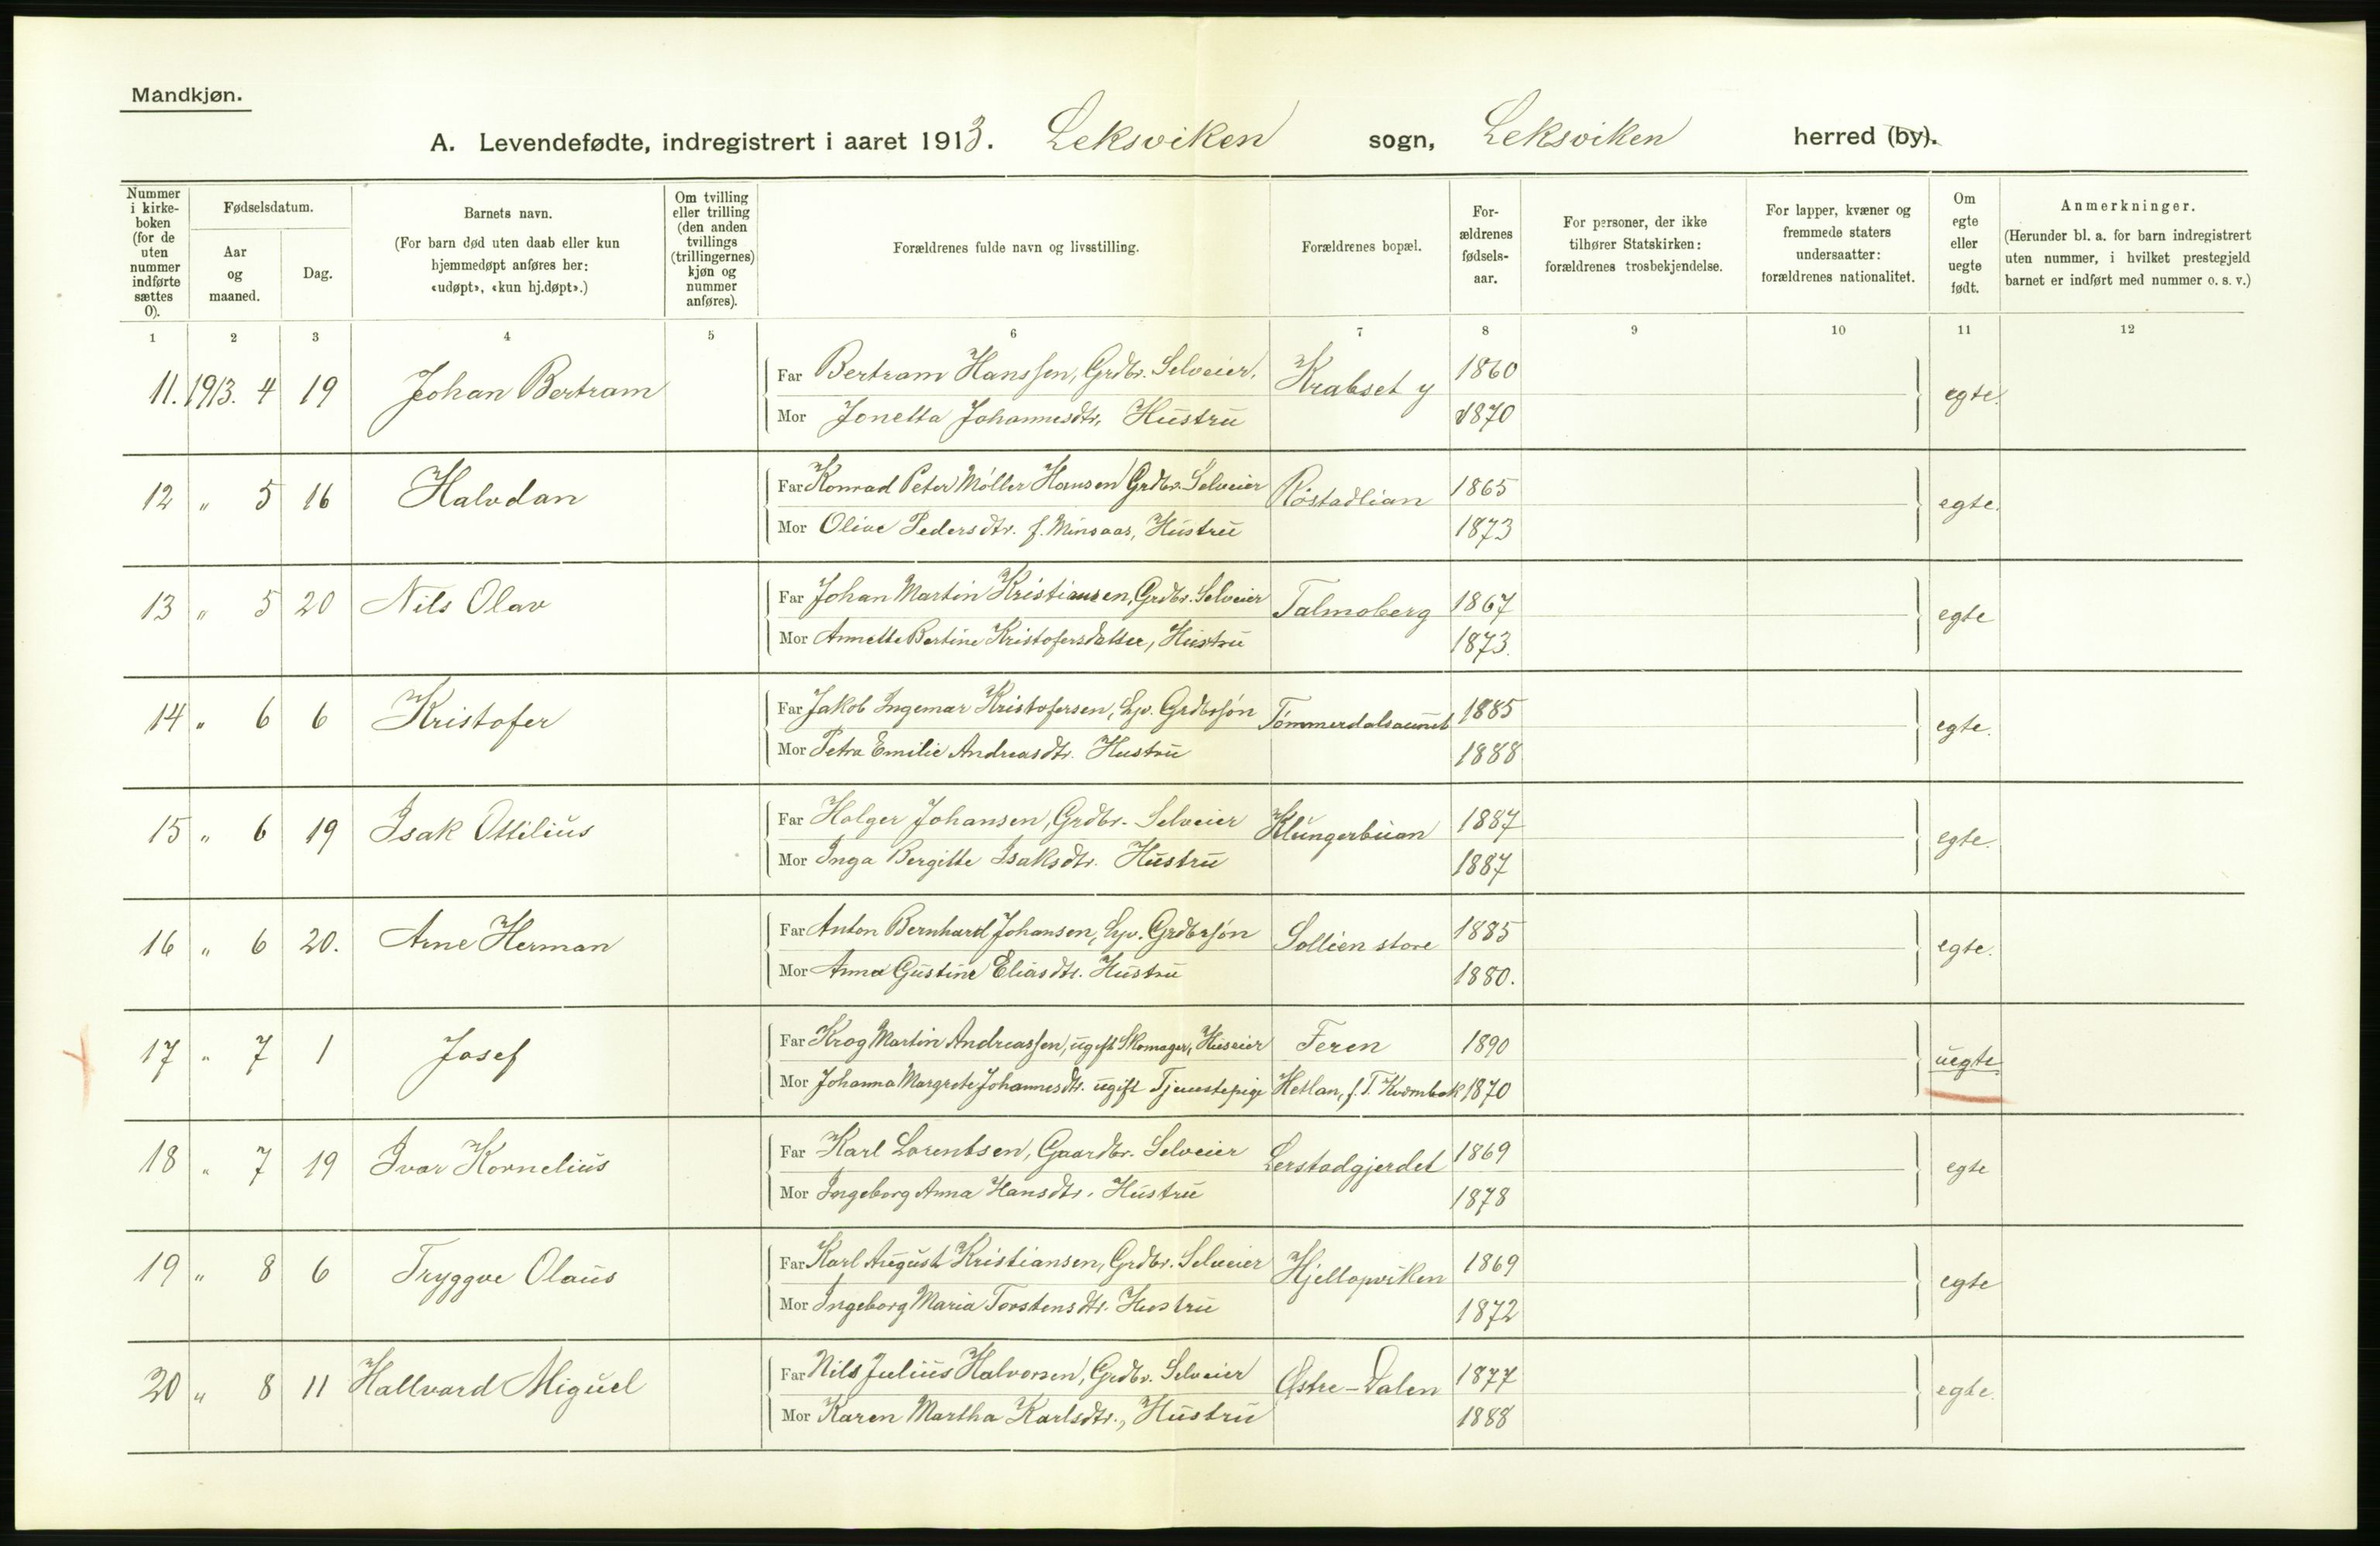 Mandkjøn.
A. Levendefødte, indregistrert i aaret 1913. Leksviken sogn, Leksviken herred (by).
Nummer i kirke-boken (for de uten nummer indførte sættes 0).
Fødselsdatum.
Aar og maaned.
Dag.
Barnets navn.
(For barn død uten daab eller kun hjemmedøpt anføres her: «udøpt», «kun hj.døpt».)
Om tvilling eller trilling (den anden tvillings (trillingernes) kjøn og nummer anføres).
Forældrenes fulde navn og livsstilling.
Forældrenes bopæl.
For-ældrenes fødsels-aar.
For personer, der ikke tilhører Statskirken: forældrenes trosbekjendelse.
For lapper, kvæner og fremmede staters undersaatter: forældrenes nationalitet.
Om egte eller uegte født.
Anmerkninger.
(Herunder bl. a. for barn indregistrert uten nummer, i hvilket prestegjeld barnet er indført med nummer o. s. v.)
1 2 3 4 5 6 7 8 9 10 11 12
11. 1913. 4 19 Johan Bertram Far Bertram Hanssen, Grdbr. Selveier. Krabset y 1860 egte.
Mor Jonetta Johannesdtr, Hustru 1870
12 " 5 16 Halvdan Far Konrad Peter Møller Hansen, Grdbr. Selveier Røstadlian 1865 egte.
Mor Olive Pedersdtr. f. Minsaas, Hustru 1873
13 " 5 20 Nils Olav Far Johan Martin Kristiansen, Grdbr. Selveier Talmoberg 1867 egte
Mor Annette Bertine Kristofersdatter, Hustru 1873.
14 " 6 6 Kristofer Far Jakob Ingemar Kristofersen, Grdbrsøn Tømmerdalsaunet 1885 egte.
Mor Petra Emilie Andreasdtr. Hustru 1888
15 " 6 19 Isak Ottilius Far Holger Johansen, Grdbr. Selveier Klungerbuan 1887 egte.
Mor Inga Bergitte Isaksdtr. Hustru 1887
16 " 6 20. Arne Herman Far Anton Bernhard Johansen, Grdbrsøn Sollien store 1885 egte.
Mor Anna Gustine Eliasdtr. Hustru 1880.
17 " 7 1 Josef Far Krog Martin Andreassen, ugift Skomager, Huseier Feren 1890 uegte.
Mor Johanna Margrete Johannesdtr. ugift Tjenestepige Hetlan, f. T. 1870
18 " 7 19 Ivar Kornelius Far Karl Lorentsen, Gaardbr. Selveier Lerstadgjerdet 1869 egte
Mor Ingeborg Anna Hansdtr. Hustru 1878
19 " 8 6 Tryggve Olaus Far Karl August Kristiansen, Grdbr. Selveier Hjellopviken 1869 egte
Mor Ingeborg Maria Torstensdtr. Hustru 1872
20 " 8 11 Hallvard Miguel Far Nils Julius Halvorsen, Grdbr. Selveier Østre-Dalen 1877 egte.
Mor Karen Martha Karlsdtr., Hustru 1888